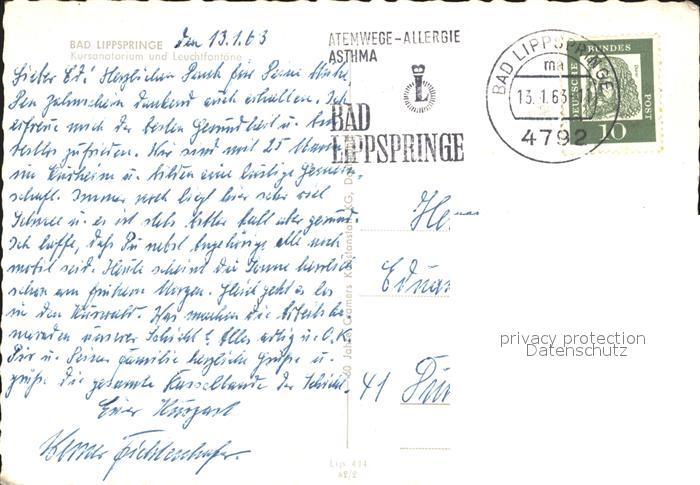 BAD LIPPSPRINGE
Kursanatorium und Leuchtfontäne
den 13.1.63
Lieber Ed! Herzlichen Dank für Deine
Den Zahnschein dankend auch erhalten. Ich
erfreue mich der besten Gesundheit u. bin
bestens zufrieden. Wir sind mit 25 Mann
im Kurheim u. bilden eine lustige Gemein-
schaft. Immer noch liegt hier sehr viel
Schnee u. es ist stets bitter kalt aber gesund.
Ich hoffe, daß Du nebst Angehörige alle noch
mobil seid. Heute scheint die Sonne herrlich
schon am frühen Morgen. Gleich geht es los
in den Kurwald. Was machen die Arbeitska-
meraden unserer Schicht? Alles artig u. O.K.
Dir u. Deiner Familie herzliche Grüße u.
grüße die gesamte Rasselbande der Schicht.
Euer Kurgast
Werner
ATEMWEGE-ALLERGIE
ASTHMA
L
BAD
LIPPSPRINGE
BAD LIPPSPRINGE
13.1.63
4792
DEUTSCHE BUNDES POST
10
41
privacy protection
Datenschutz
Lips 414
62/2